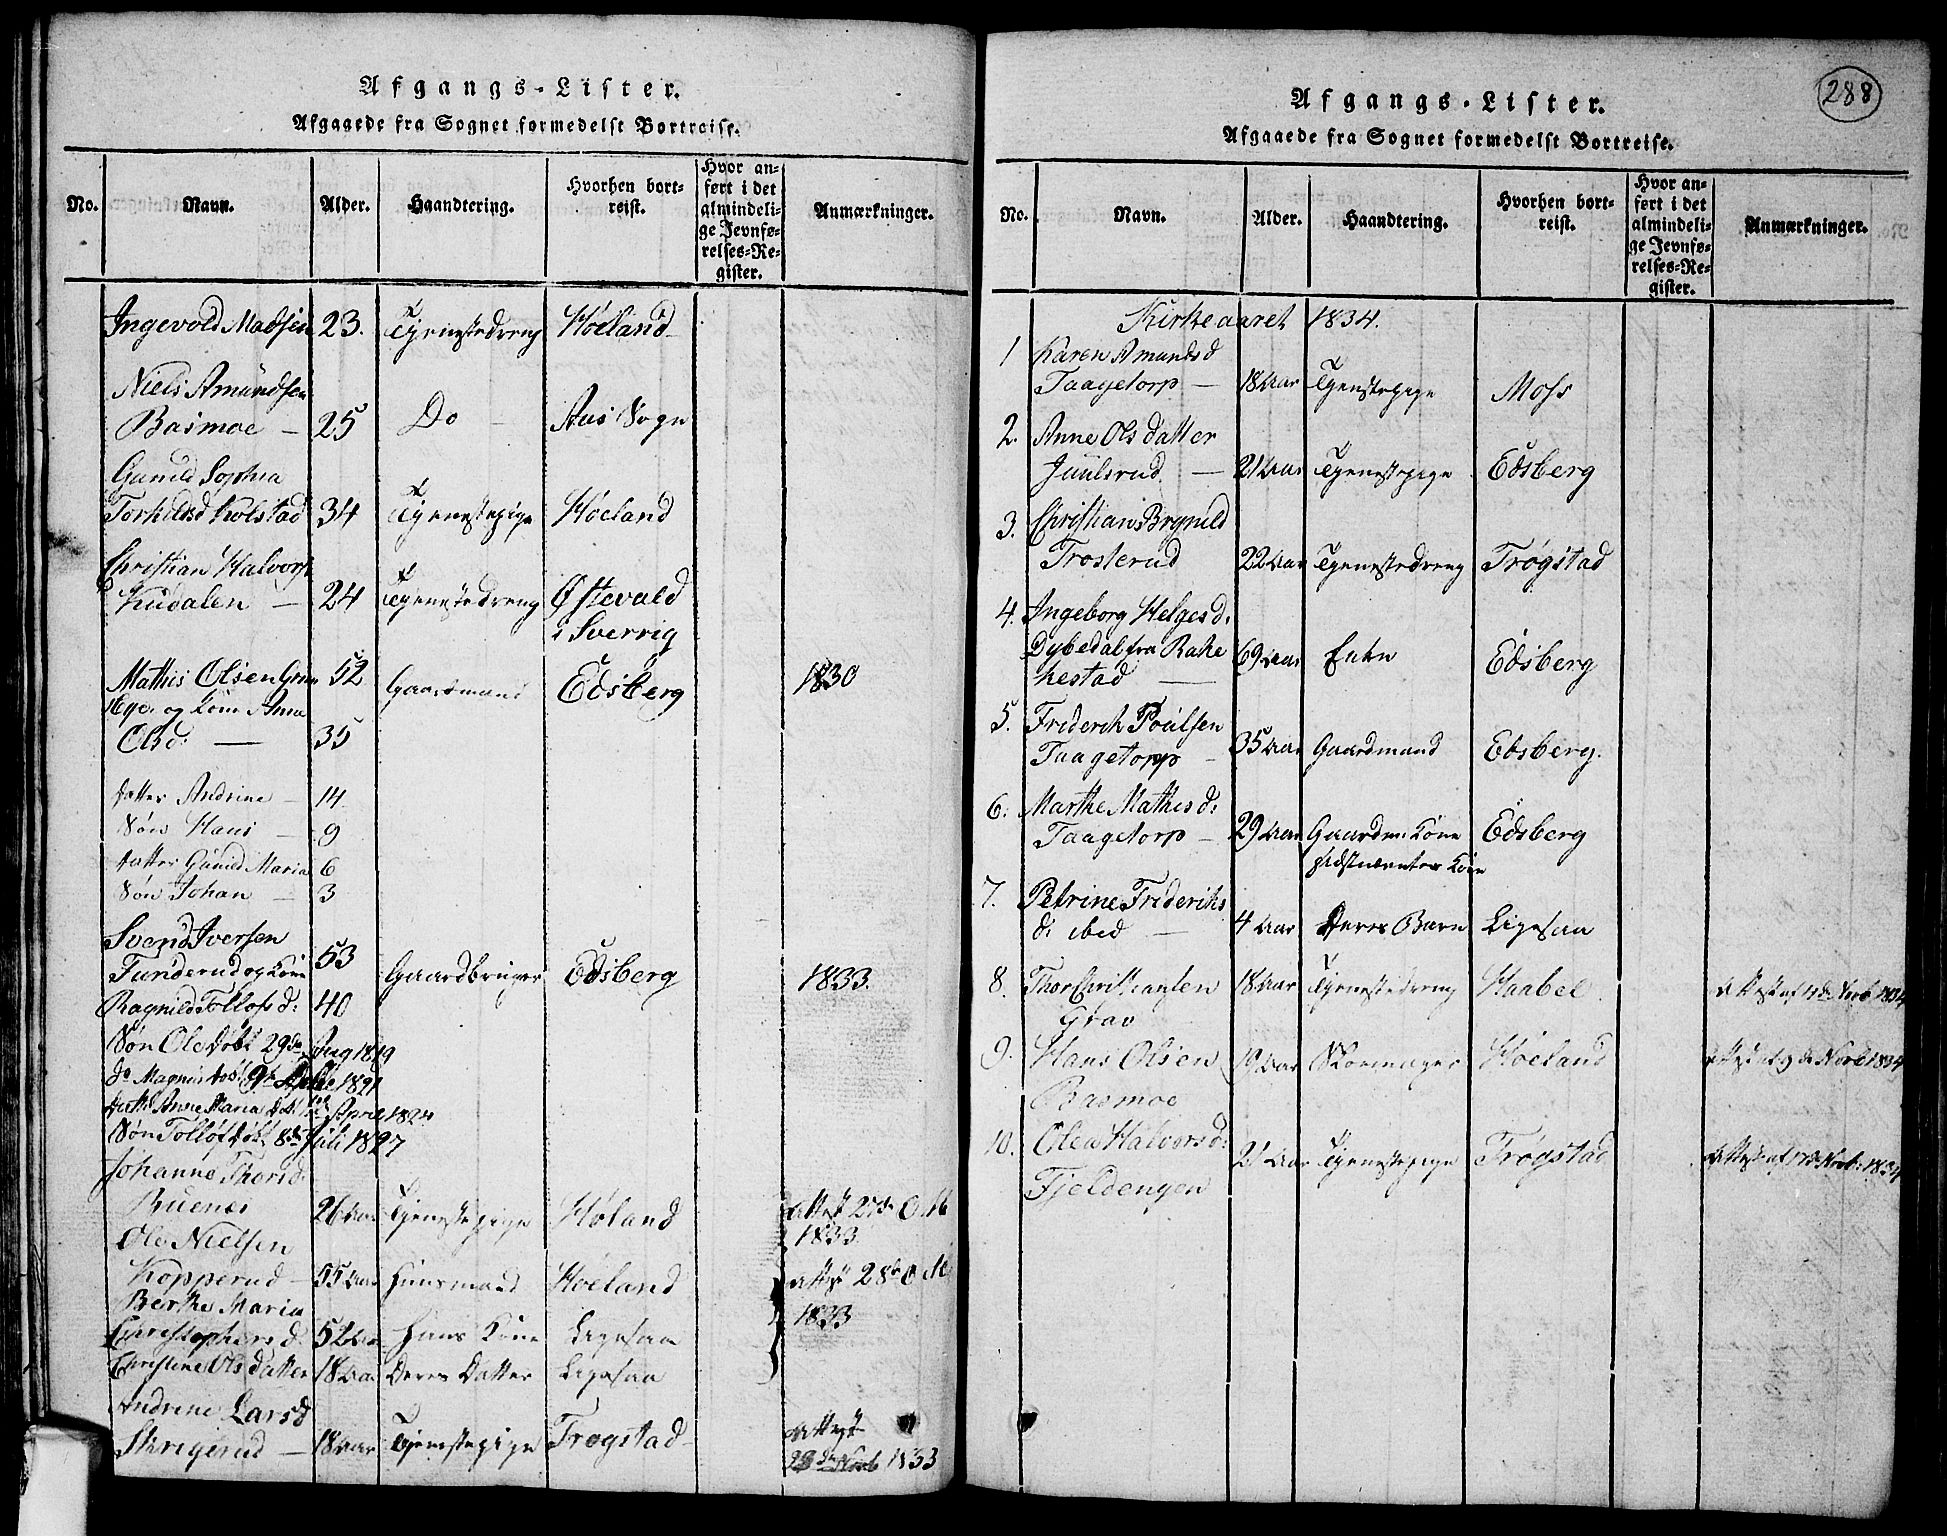 Afgangs-Lister.
Afgaaede fra Sognet formedelst Bortreise.
No. Navn. Alder. Haandtering. Hvorhen bort-reist. Hvor an-ført i det almindeli-ge Jevnfø-relses-Re-gister. Anmærkninger.
Ingevold Madsen 23. Tjenestedreng Høeland
Niels Amundsen
Basmoe — 25 Do Aus Sogn
Gunild Sophia
Torkildsd Kolstad 34 Tjenestepige Høeland
Christian Halvors
Kudalen — 24 Tjenestedreng Østevald
i Sverrig
Mathis Olsen 52 Gaardmand Edsberg 1830
og Kone Anne
Olsd: — 35
datter Andrine — 14
Søn Hans — 9
datter Gunild Maria 6
Søn Johan — 3
Svend Iversen
Tunderud og Kone 53 Gaardbruger Edsberg 1833.
Ragnild Tollofsd: 40
Søn Ole døbt 29de Aug 1819
do Magnus døbt 1821
datt: Anne Maria døbt April 1824
Søn Tollof døbt 8de Juli 1827
Johanne Thorsd:
Buenes 26 Aar Tjenestepige Høland Attest 27de Oct
1833
Ole Nielsen
Kopperud — 55 Aar Huusmand Høeland Attest 28de Oct
1833
Berthe Maria
Christophersd 52 Aar Hans Kone Ligesaa
Christine Olsdatter 18 Aar Deres Datter Ligesaa
Andrine Larsd
Skrigerud — 18 Aar Tjenestepige Trøgstad Attest
Novb 1833
288
Afgangs-Lister.
Afgaaede fra Sognet formedelst Bortreise.
No. Navn. Alder. Haandtering. Hvorhen bort-reist. Hvor an-ført i det almindeli-ge Jevnfø-relses-Re-gister. Anmærkninger.
Kirkeaaret 1834.
1 Karen Amundsd
Taagetorp — 18 Aar Tjenestepige Moss
2. Anne Olsdatter
Juulsrud — 21 Aar Tjenestepige Edsberg
3. Christian Brynild
Trosterud 22 Aar Tjenestedreng Trøgstad
4. Ingeborg Helgesd:
Dybedal fra Rakke 69 Aar Enke Edsberg
kestad —
5. Friderich Poulsen
Taagetorp — 35 Aar Gaardmand Edsberg.
6. Marthe Mathisd:
Taagetorp — 29 Aar Gaardm: Kone Edsberg
sidstnævntes Kone
7. Petrine Frideriks
d: ibid — 4 Aar Deres Barn Ligesaa
8. Thor Christiansen 18 Aar Tjenestedreng Haabel Attest af 4de Novb 1834
Grav
9. Hans Olsen 19 Aar Skoemager Høeland Attest af 9de Novb 1834
Basmoe
10. Olea Halvorsd: 21 Aar Tjenestepige Trøgstad Attest af 17de Novb: 1834
Fjeldengen